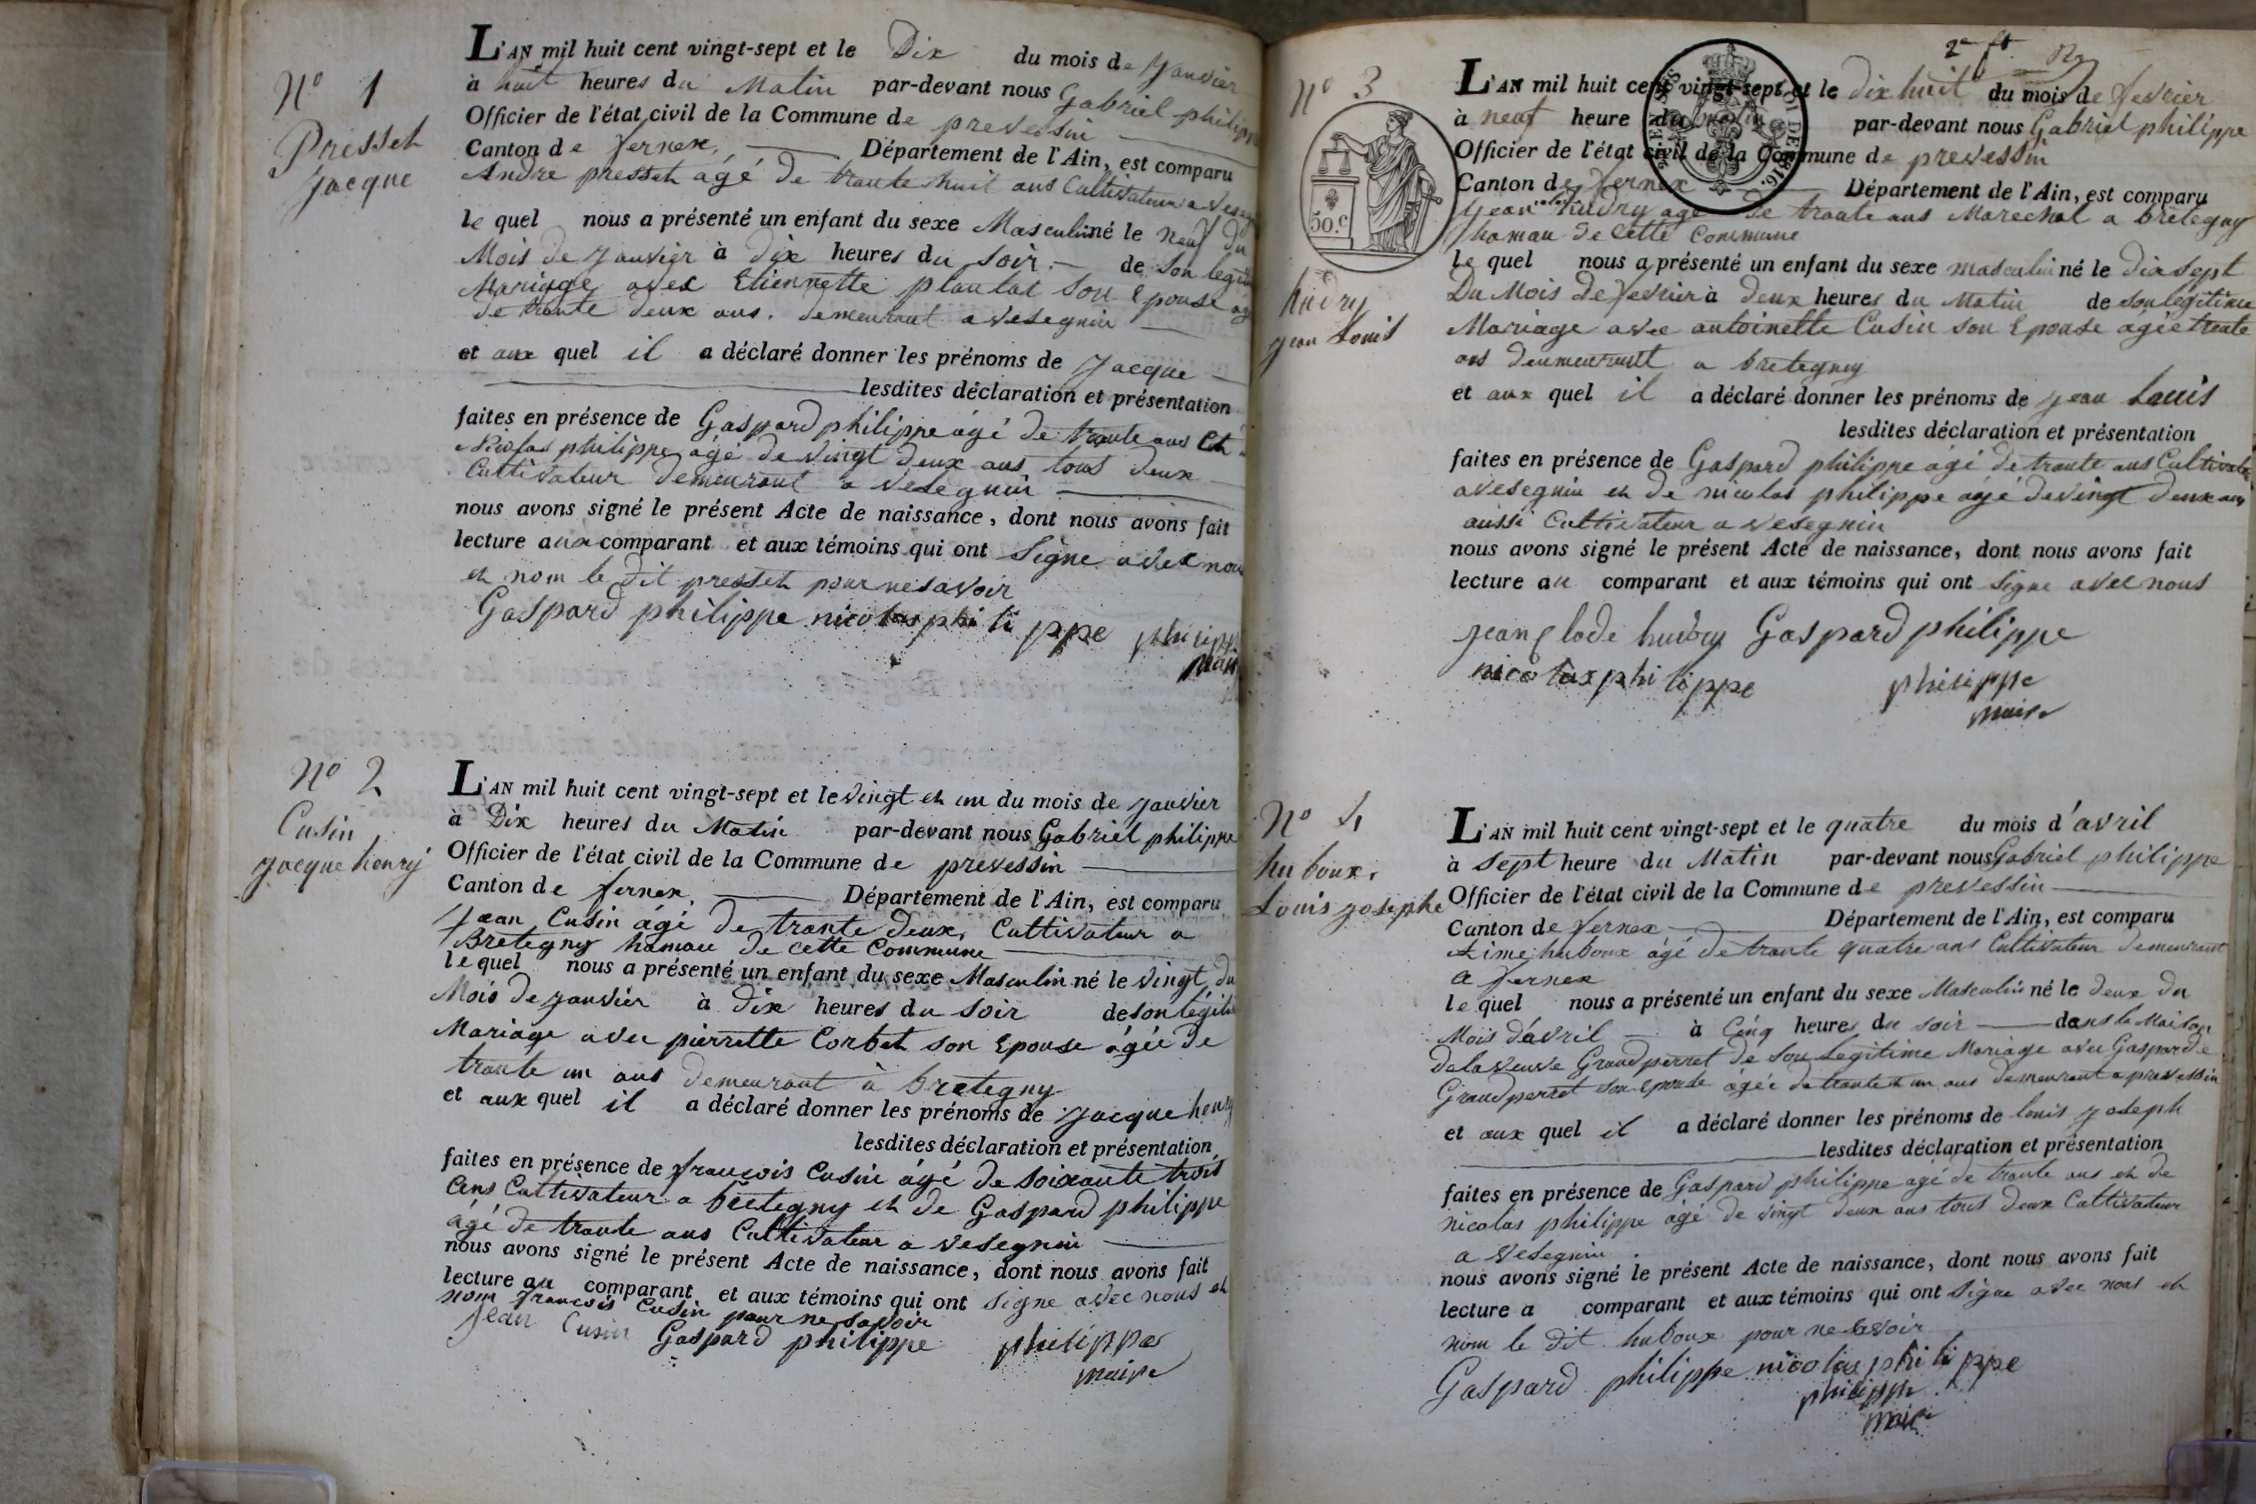 N° 1
Presset
Jacque
L'AN mil huit cent vingt-sept et le Dix du mois de Janvier
à huit heures du Matin par-devant nous Gabriel philippe
Officier de l'état civil de la Commune de prevessin
Canton de fernex, Département de l'Ain, est comparu
Andre presset âgé de trante huit ans Cultivateur a
le quel nous a présenté un enfant du sexe Masculin né le neuf du
Mois de Janvier à dix heures du soir de son
Mariage avec Etiennette plantat son Epouse
de trante deux ans. demeurant a vesegnin
et aux quel il a déclaré donner les prénoms de Jacque
lesdites déclaration et présentation
faites en présence de Gaspard philippe âgé de trante ans et
Nicolas philippe âgé de vingt deux ans tous deux
Cultivateur demeurant a vesegnin
nous avons signé le présent Acte de naissance, dont nous avons fait
lecture aux comparant et aux témoins qui ont Signe avec nous
et nom le dit presset pour ne savoir
Gaspard philippe nicolas phi li ppe philippe
maire
N° 2
Cusin
Jacque henry
L'AN mil huit cent vingt-sept et le vingt et un du mois de Janvier
à Dix heures du Matin par-devant nous Gabriel philippe
Officier de l'état civil de la Commune de prevessin
Canton de fernex. Département de l'Ain, est comparu
Jean Cusin âgé de trante deux, Cultivateur a
Bretegny hamau de cette Commune
le quel nous a présenté un enfant du sexe Masculin né le vingt du
Mois de Janvier à dix heures du soir de son
Mariage avec pierrette Corbet son Epouse âgée de
trante un ans demeurant à bretegny
et aux quel il a déclaré donner les prénoms de Jacque henry
lesdites déclaration et présentation
faites en présence de françois Cusin âgé de soixante trois
ans Cultivateur a bretegny et de Gaspard philippe
âgé de trante ans Cultivateur a vesegnin
nous avons signé le présent Acte de naissance, dont nous avons fait
lecture au comparant et aux témoins qui ont signe avec nous et
nom françois Cusin pour ne savoir
jean Cusin Gaspard philippe philippe
maire
2e ft
N° 3
50.c
hudry
jean Louis
L'AN mil huit cent vingt-sept et le dix huit du mois de fevrier
à neuf heure du matin par-devant nous Gabriel philippe
Officier de l'état civil de la Commune de prevessin
Canton de fernex Département de l'Ain, est comparu
Jean hudry age de trante ans Marechal a bretegny
hamau de cette Commune
le quel nous a présenté un enfant du sexe masculin né le dix sept
Du Mois de fevrier à deux heures du Matin de son legitime
Mariage avec antoinette Cusin son Epouse âgée trente
ans deumeurant a bretegny
et aux quel il a déclaré donner les prénoms de jean Louis
lesdites déclaration et présentation
faites en présence de Gaspard philippe âgé de trante ans
a vesegnin et de nicolas philippe âgé de vingt deux ans
aussi Cultivateur a vesegnin
nous avons signé le présent Acte de naissance, dont nous avons fait
lecture au comparant et aux témoins qui ont signe avec nous
jean Clode hudry Gaspard philippe
nicolas phi lippe philippe
maire
N° 4
huboux.
Louis josephe
L'AN mil huit cent vingt-sept et le quatre du mois d'avril
à sept heure du Matin par-devant nous Gabriel philippe
Officier de l'état civil de la Commune de prevessin
Canton de fernex Département de l'Ain, est comparu
huboux âgé de trante quatre ans Cultivateur demeurant
a fernex
le quel nous a présenté un enfant du sexe Masculin né le deux du
Mois d'avril à Cinq heures du soir dans la Maison
de la veuve Grandperret de son Legitime Mariage avec Gasparde
Grandperret son Epouse âgée de trante et un ans demeurant a prevessin
et aux quel il a déclaré donner les prénoms de louis joseph
lesdites déclaration et présentation
faites en présence de Gaspard philippe agé de trante ans et de
nicolas philippe agé de vingt deux ans tous deux Cultivateur
a vesegnin.
nous avons signé le présent Acte de naissance, dont nous avons fait
lecture a comparant et aux témoins qui ont signe avec nous et
nom le dit huboux pour ne savoir
Gaspard philippe nicolas phi li ppe
philippe
maire